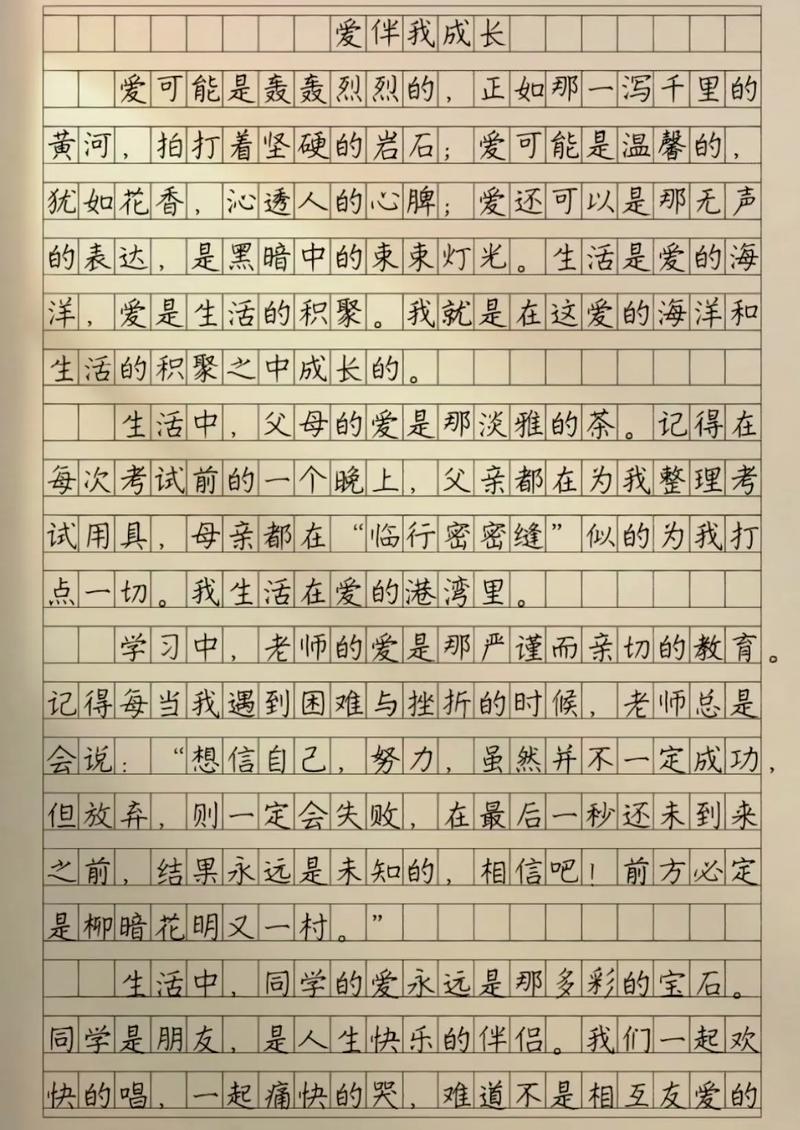 爱伴我成长
爱可能是轰轰烈烈的，正如那一泻千里的
黄河，拍打着坚硬的岩石；爱可能是温馨的，
犹如花香，沁透人的心脾；爱还可以是那无声
的表达，是黑暗中的束束灯光。生活是爱的海
洋，爱是生活的积聚。我就是在这爱的海洋和
生活的积聚之中成长的。
生活中，父母的爱是那淡雅的茶。记得在
每次考试前的一个晚上，父亲都在为我整理考
试用具，母亲都在“临行密密缝”似的为我打
点一切。我生活在爱的港湾里。
学习中，老师的爱是那严谨而亲切的教育。
记得每当我遇到困难与挫折的时候，老师总是
会说：“想信自己，努力，虽然并不一定成功，
但放弃，则一定会失败，在最后一秒还未到来
之前，结果永远是未知的，相信吧！前方必定
是柳暗花明又一村。”
生活中，同学的爱永远是那多彩的宝石。
同学是朋友，是人生快乐的伴侣。我们一起欢
快的唱，一起痛快的哭，难道不是相互友爱的